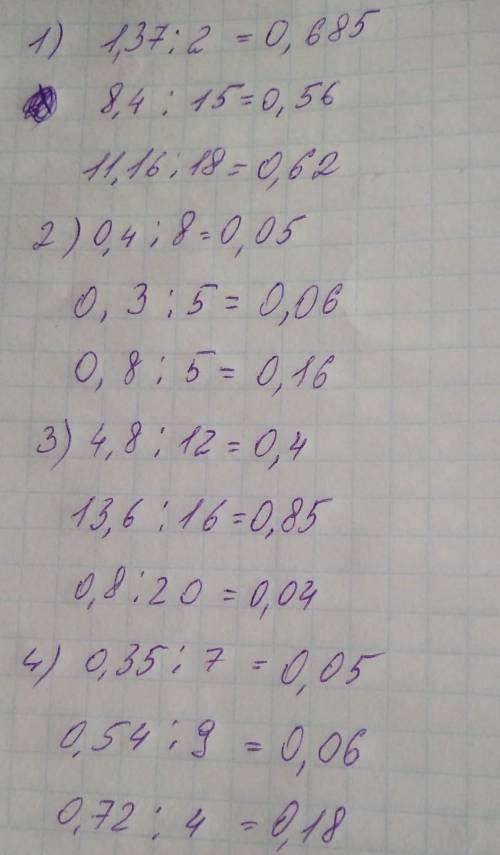 1) 1,37 : 2 = 0,685
8,4 : 15 = 0,56
11,16 : 18 = 0,62
2) 0,4 : 8 = 0,05
0,3 : 5 = 0,06
0,8 : 5 = 0,16
3) 4,8 : 12 = 0,4
13,6 : 16 = 0,85
0,8 : 20 = 0,04
4) 0,35 : 7 = 0,05
0,54 : 9 = 0,06
0,72 : 4 = 0,18